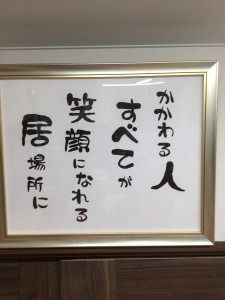 かかわる人
すべてが
笑顔になれる
居場所に